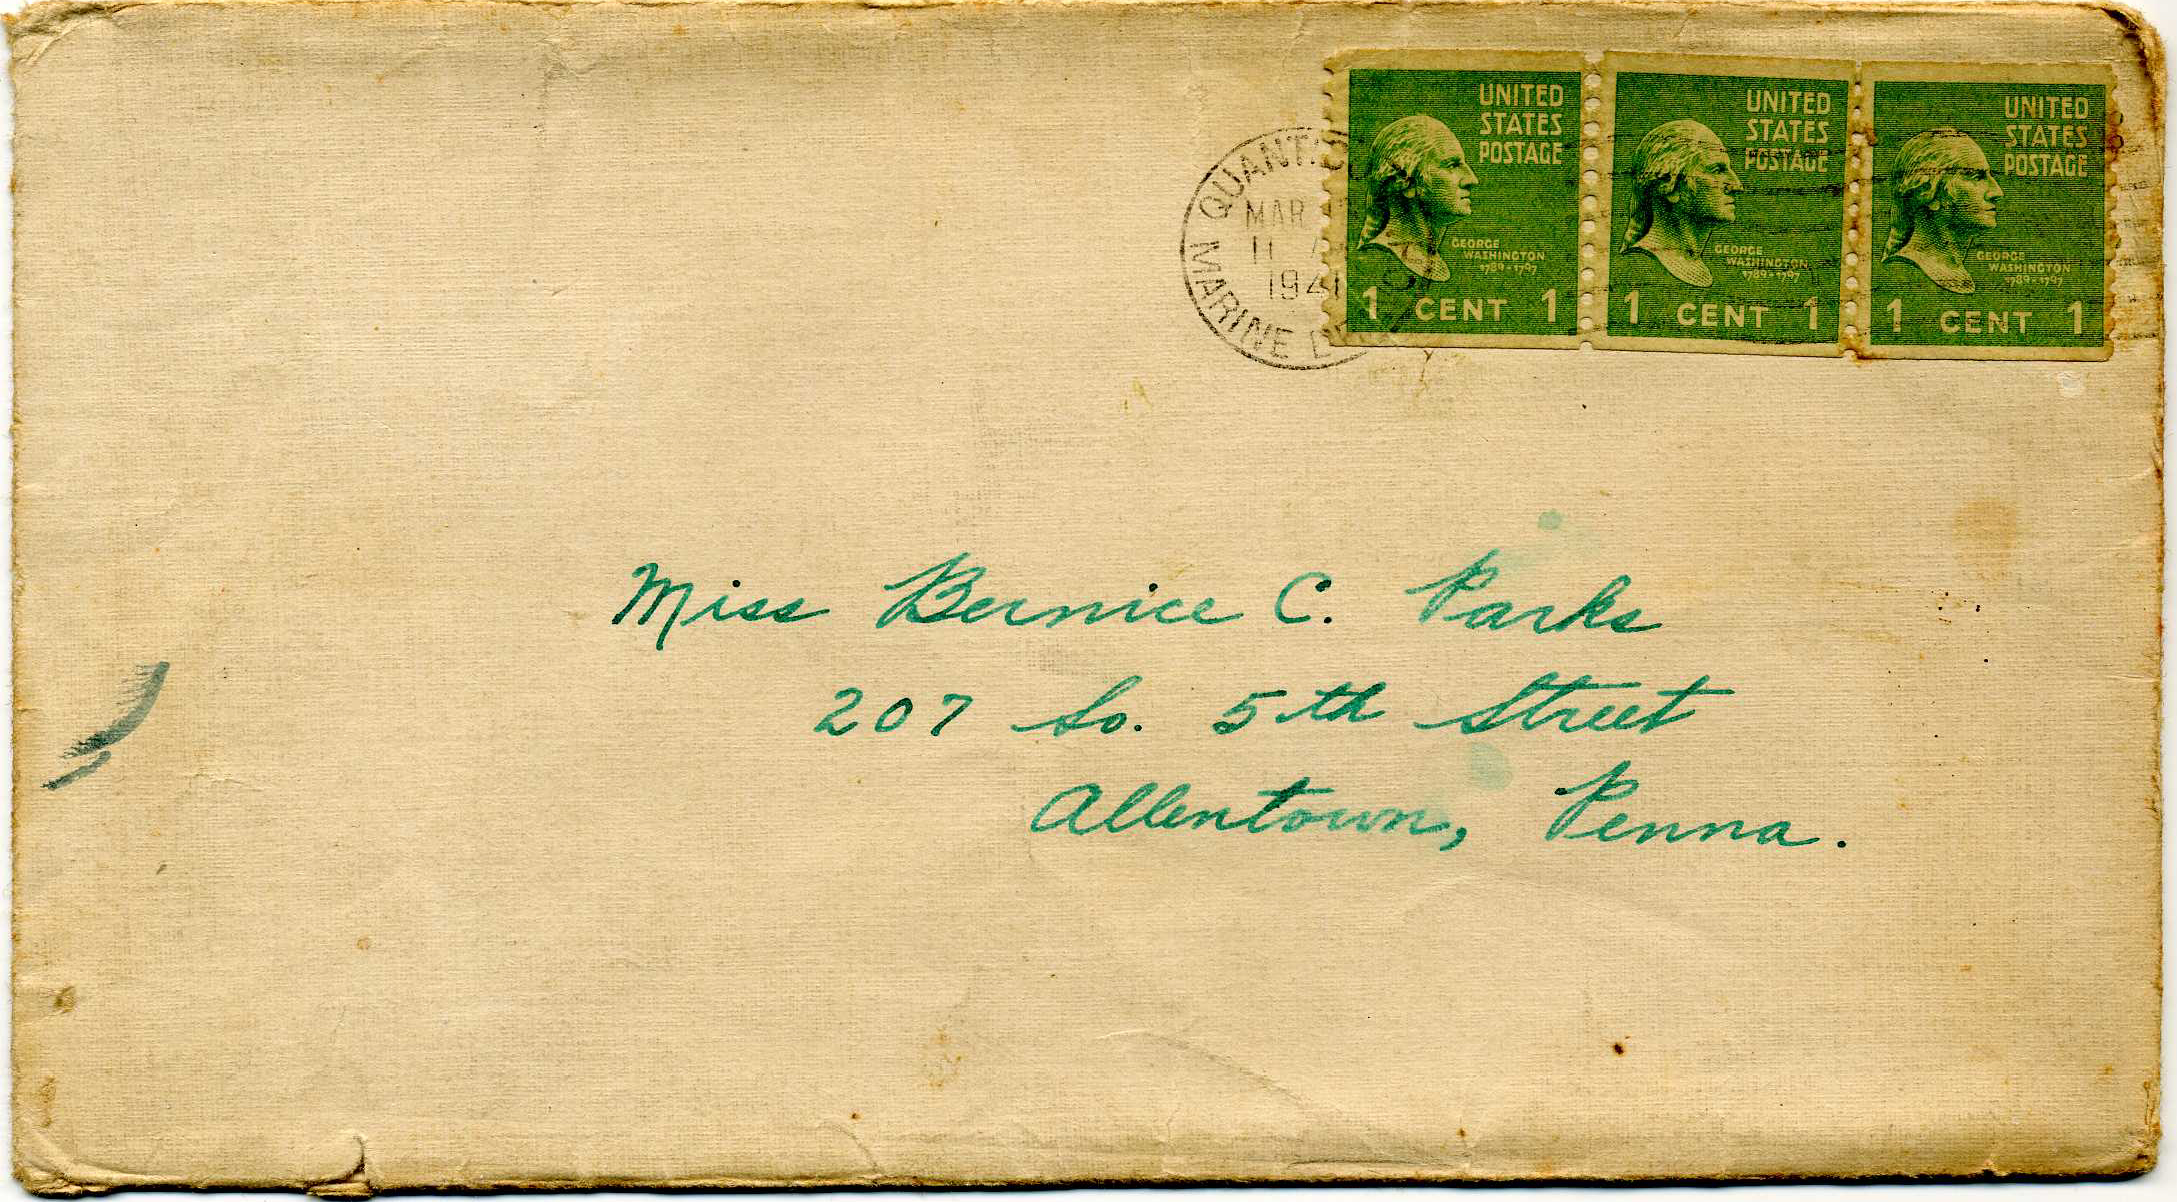 QUANTICO
MAR
11
1941
MARINE
UNITED STATES POSTAGE
GEORGE WASHINGTON
1789-1797
1 CENT 1
UNITED STATES POSTAGE
GEORGE WASHINGTON
1789-1797
1 CENT 1
UNITED STATES POSTAGE
GEORGE WASHINGTON
1789-1797
1 CENT 1
Miss Bernice C. Parks
207 So. 5th Street
Allentown, Penna.